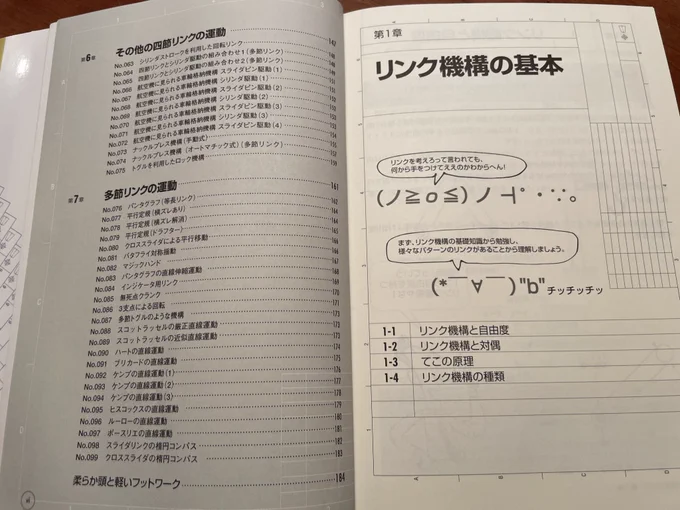 第6章 その他の四節リンクの運動 147
No.063 シリンダストロークを利用した回転リンク
No.064 四節リンクとシリンダ駆動の組み合わせ1(多節リンク)
No.065 四節リンクとシリンダ駆動の組み合わせ2(多節リンク)
No.066 航空機に見られる車輪格納機構 スライダピン駆動(1)
No.067 航空機に見られる車輪格納機構 シリンダ駆動(1)
No.068 航空機に見られる車輪格納機構 シリンダ駆動(2)
No.069 航空機に見られる車輪格納機構 スライダピン駆動(2)
No.070 航空機に見られる車輪格納機構 スライダピン駆動(3)
No.071 航空機に見られる車輪格納機構 シリンダ駆動(3)
No.072 航空機に見られる車輪格納機構 スライダピン駆動(4)
No.073 ナックルプレス機構(手動式)
No.074 ナックルプレス機構(オートマチック式)(多節リンク)
No.075 トグルを利用したロック機構 159
第7章 多節リンクの運動 161
No.076 パンタグラフ(等長リンク)
No.077 平行定規(横ズレあり)
No.078 平行定規(横ズレ解消)
No.079 平行定規(ドラフター)
No.080 クロススライダによる平行移動
No.081 バタフライ対称振動
No.082 マジックハンド
No.083 パンタグラフの直線伸縮運動
No.084 インジケータ用リンク
No.085 無死点クランク
No.086 3支点による回転
No.087 多節トグルのような機構
No.088 スコットラッセルの厳正直線運動
No.089 スコットラッセルの近似直線運動
No.090 ハートの直線運動
No.091 ブリカードの直線運動
No.092 ケンプの直線運動(1)
No.093 ケンプの直線運動(2)
No.094 ケンプの直線運動(3)
No.095 ヒスコックスの直線運動 179
No.096 ルーローの直線運動 180
No.097 ポースリエの直線運動 181
No.098 スライダリンクの楕円コンパス 182
No.099 クロススライダの楕円コンパス 183
柔らか頭と軽いフットワーク 184
第1章
リンク機構の基本
リンクを考えろって言われても、
何から手をつけてええのかわからへん!
(ノ≧o≦)ノ ┤゜・∵。
まず、リンク機構の基礎知識から勉強し、
様々なパターンのリンクがあることから理解しましょう。
(*￣∀￣)"b" チッチッチッ
1-1 リンク機構と自由度
1-2 リンク機構と対偶
1-3 てこの原理
1-4 リンク機構の種類